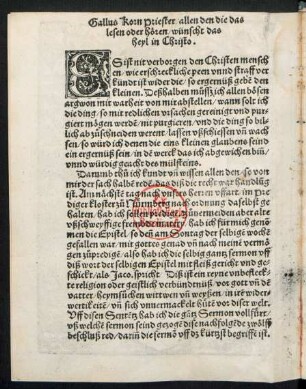 Gallus Korn Priester allen den die das
lesen oder hören, wünscht das
heyl in Christo.
ES ist nit verborgen den Christen mensch
en, wie erschreckliche peen vnnd straff ver
kündt ist wider die, so ergernüß gebē den
kleinen. Deßhalben müß ich allen bösen
argwon mit warheit von mir abstellen, wann solt ich
die ding, so mit redlichen vrsachen gereinigt vnd pur
giert mögen werdē nit purgieren, vnd die ding so bil=
lich abzuschneiden werent, lassen vffschiessen vñ wach
sen, so würd ich denen die eins kleinen glaubens sein
ein ergernüß sein, in dē werck das ich abgewichen bin,
vnnd würdig geacht des mülsteins.
Darumb thů ich kundt vñ wissen allen den, so von
mir der sach halbē redē, das die recht war handlūg
ist. Am nächstē tag nach vnsers herren vffart, im Pre
diger kloster zů Nürmberg nach ordnung daselbst ge
halten, hab ich sollen predigē,
den am Sontag der selbigē woche
gefallen war, mit gottes genad vñ nach meinē vermö
gen zůpredigē, also hab ich die selbig gantz sermon vff
diß wort der selbigen Epistel mit fleiß gericht vnd ge
schickt, also Jaco. spricht. Diß ist ein reyne vnbefleck=
te religion oder geistlich verbündtnüß, vor gott vñ dē
vatter, heymsůchen witwen vñ weysen, in irē wider=
wertickeitē, vñ sich vnuermackelt hütē vor diser welt.
Vff disen Sentētz hab ich die gātz Sermon vollfürt,
vß welchē sermon seind gezogē dise nachfolgēde zwölff
beschlußredē, darin die sermō vff dz kürtzst begriffē ist.